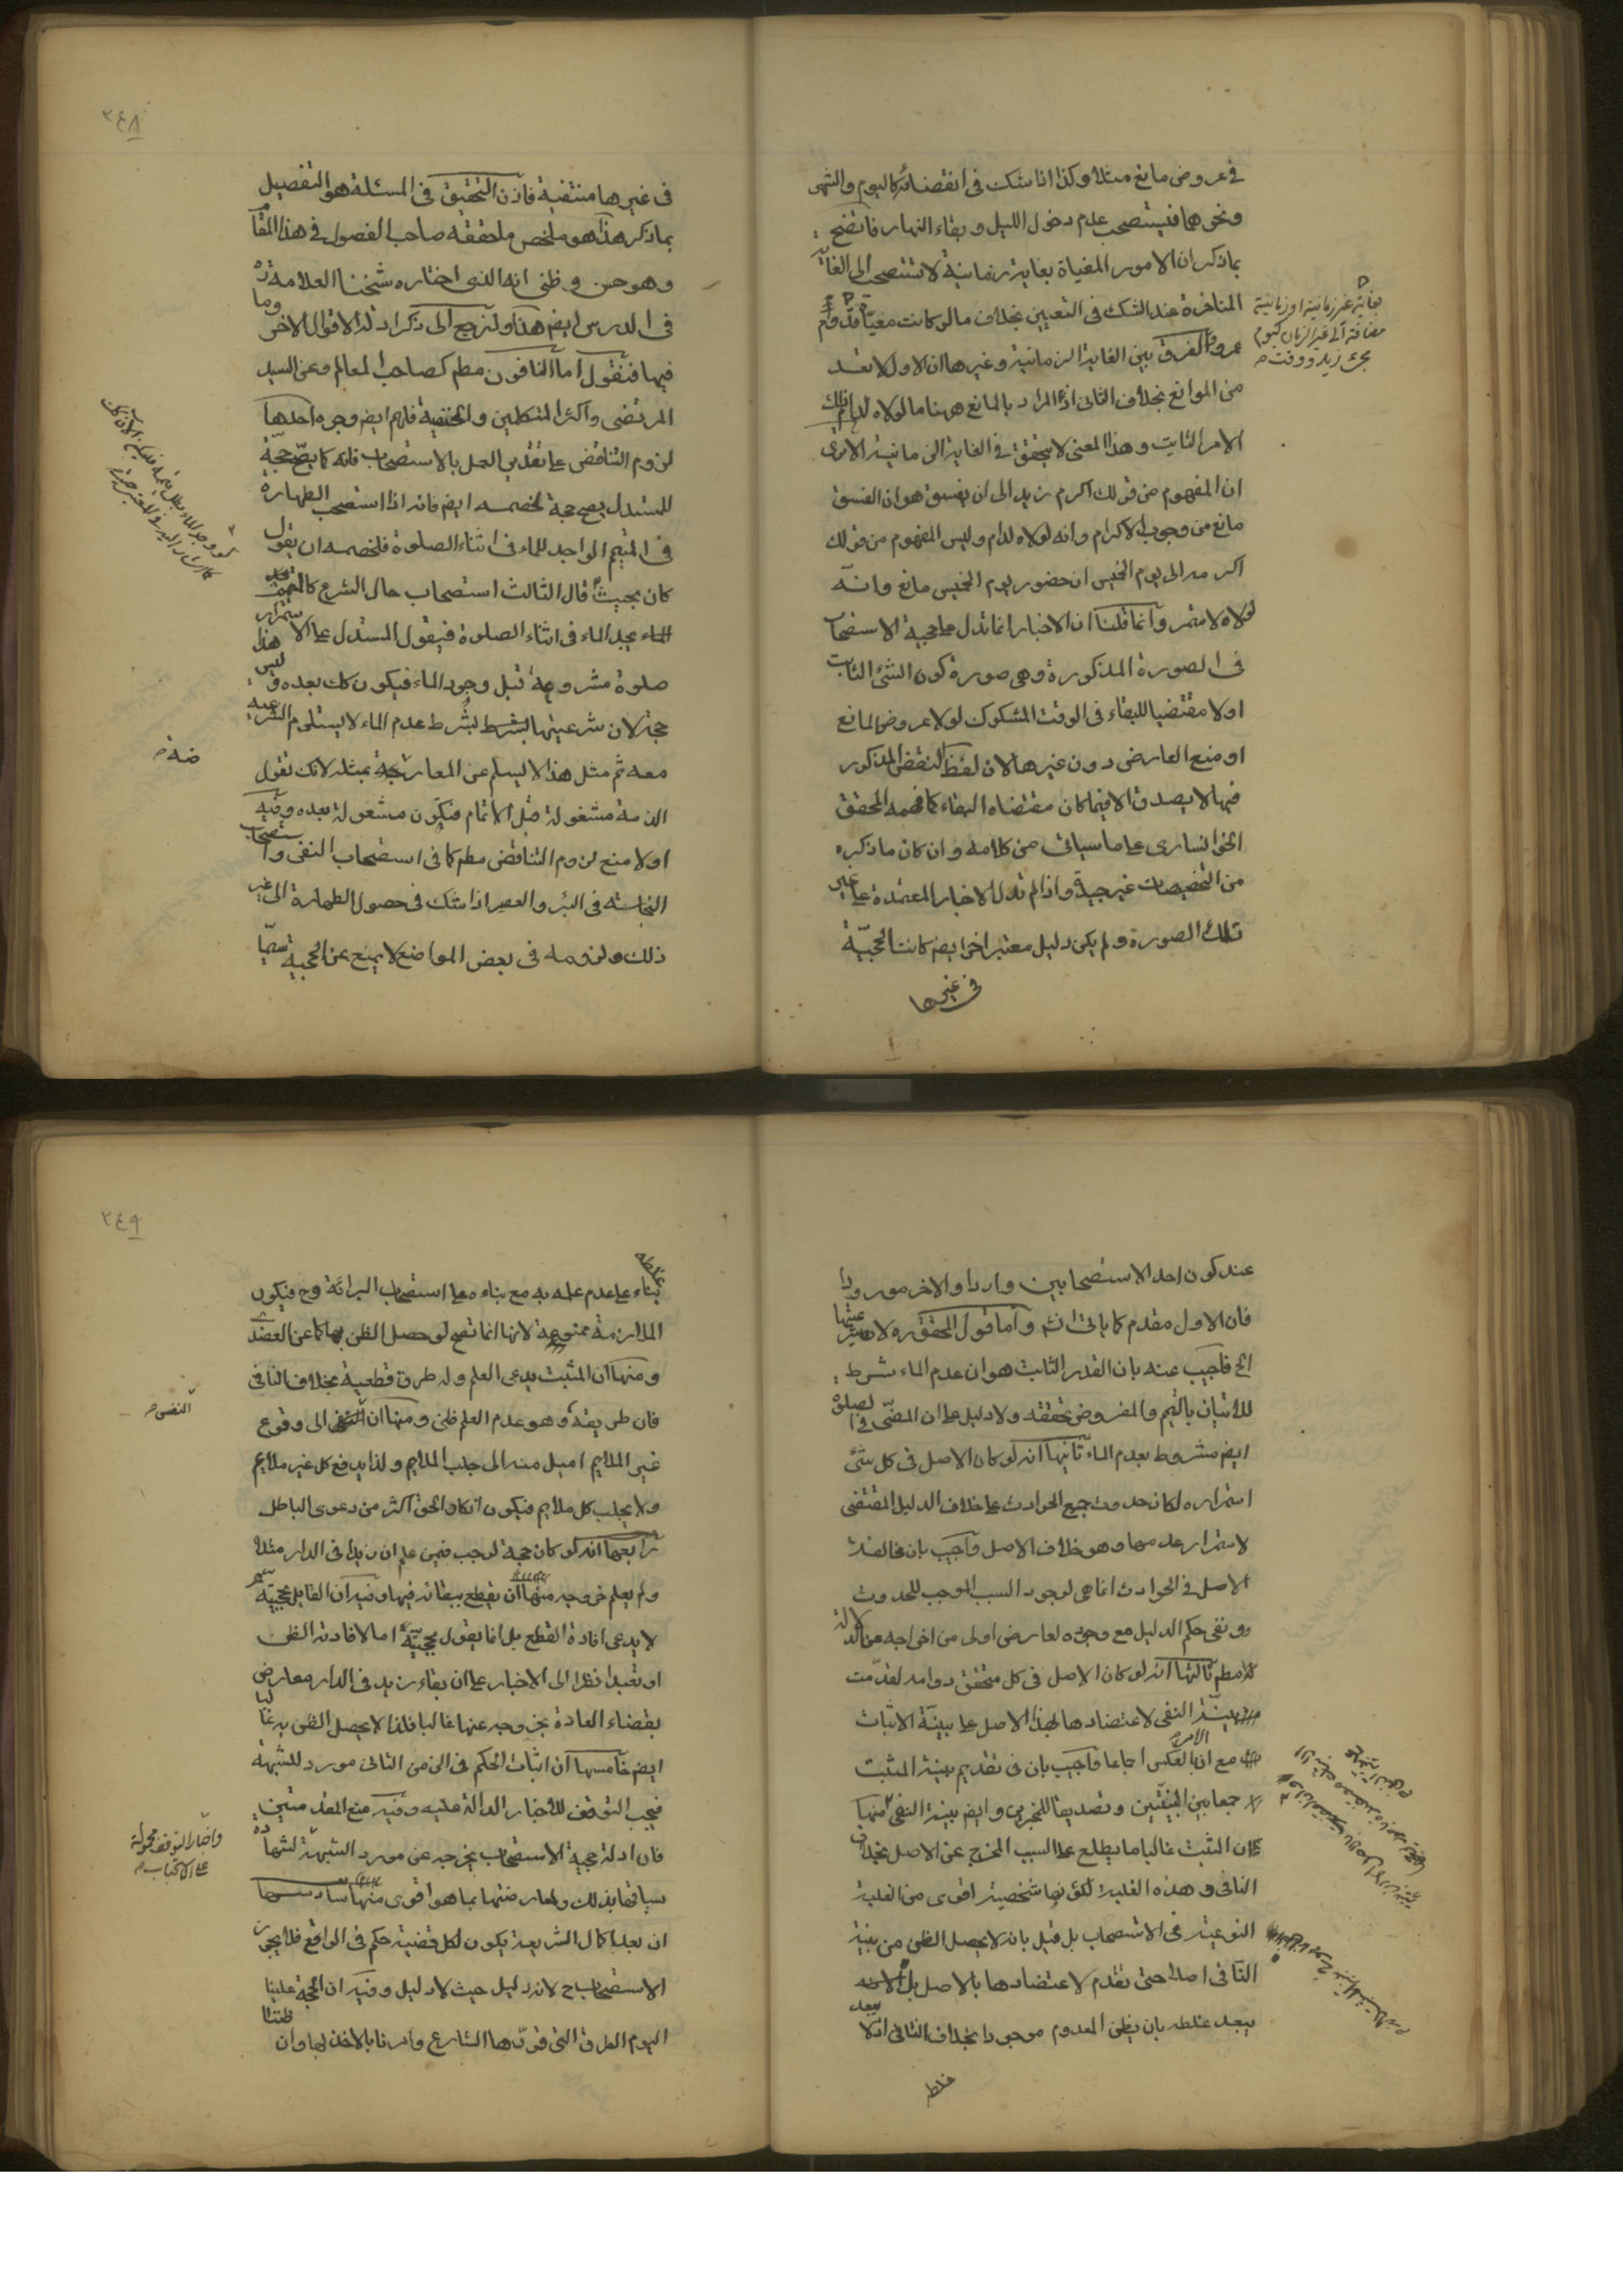 في عروض مانع مثلا وكذا اذا شك في انقضائه كاليوم والشهر
ونحوهما فيستصحب عدم دخول الليل وبقاء النهار فاتضح
بما ذكر ان الامور المغياة بغاية زمانية لا تستصحب الى الغاية
المتاخرة عند الشك في التعيين بخلاف ما لو كانت مغياة
عمرو والفرق بين الغاية الزمانية وغيرها ان الاول لا تعد
من الموانع بخلاف الثاني اذ المراد بالمانع ههنا ما لولاه لدام ذلك
الامر الثابت وهذا المعنى لا يتحقق في الغاية الزمانية الا ترى
ان المفهوم من قولك اكرم زيد الى ان يفسق هو ان الفسق
مانع من وجوب الاكرام وانه لولاه لدام وليس المفهوم من قولك
اكرمه الى يوم الخميس ان حضور يوم الخميس مانع وانه
لولاه لاستمر وانما قلنا ان الاخبار انما تدل على حجية الاستصحاب
في الصورة المذكورة وهي صورة كون الشئ الثابت
اولا مقتضيا للبقاء في الوقت المشكوك لولا عروض المانع
او منع العارض دون غيرها لان لفظ النقض المذكور
فيها لا يصدق الا فيما كان مقتضاه البقاء كما فهمه المحقق
الخوانساري على ما سيأتي من كلامه وان كان ما ذكره
من التخصيصات غير جيد واذا لم تدل الاخبار المعتمدة على غير
تلك الصورة ولم يكن دليل معتبر اخر ايض كانت الحجية
في غيرها
بغاية غير زمانية او زمانية
مضافة الى غير الزمان كيوم
مجئ زيد ووقت
٢٤٨
في غيرها منتفية فاذن التحقيق في المسئلة هو التفصيل
بما ذكر هذا هو ملخص ما حققه صاحب الفصول في هذا المقام
وهو حسن وظني انه الذي اختاره شيخنا العلامة ره
في الدرس ايض هذا ولنرجع الى ذكر ادلة الاقوال الاخر وما
فيها فنقول اما النافون مطم كصاحب المعالم وعن السيد
المرتضى واكثر المتكلمين والحنفية فلهم ايض وجوه احدها
لزوم التناقض على تقدير العمل بالاستصحاب فانه كما يصح حجة
للمستدل يصح حجة لخصمه ايض فانه اذا استصحب الطهارة
في المتيمم الواجد للماء في اثناء الصلوة فلخصمه ان يقول
كان بحيث قال الثالث استصحاب حال الشرع كالمتيمم
يجد الماء في اثناء الصلوة فيقول المستدل على الاستمرار هذا
صلوة مشروعة قبل وجود الماء فيكون كك بعده وليس
حجة لان شرعيتها بشرط عدم الماء لا يستلزم الشرعية
معه ثم مثل هذا لا يسلم عن المعارضة بمثله لانك تقول
الذمة مشغولة قبل الاتمام فيكون مشغولة بعده وفيه
اولا منع لزوم التناقض مطم كما في استصحاب النفي واستصحاب
النجاسة في البئر والعصير اذا شك في حصول الطهارة الى غير
ذلك ولزومه في بعض المواضع لا يمنع عن الحجية سيما
ضة
عند كون احد الاستصحابين واردا والاخر مورودا
فان الاول مقدم كما ياتي انش واما قول المحقق ره لان شرعيتها
الخ فاجيب عنه بان القدر الثابت هو ان عدم الماء شرط
للاتيان بالتيمم والمفروض تحققه ولا دليل على ان المضي في الصلوة
ايض مشروط بعدم الماء ثانيها انه لو كان الاصل في كل شئ
استمراره لكان حدوث جميع الحوادث على خلاف الدليل المقتضى
لاستمرار عدمها وهو خلاف الاصل واجيب بان مخالفة
الاصل في الحوادث انما هي لوجود السبب الموجب للحدوث
ونفى حكم الدليل مع وجوده لعارض اولى من اخراجه من الدلالة
مطم ثالثها انه لو كان الاصل في كل متحقق دوامه لقدمت
بينة النفي لاعتضادها بهذا الاصل على بينة الاثبات
مع ان الامر بالعكس اجماعا واجيب بان في تقديم بينة المثبت
جمعا بين البينتين وتصديقا للمخبرين وايض بينة النفي منها
ان المثبت غالبا ما يطلع على السبب المخرج عن الاصل بخلاف
النافي وهذه الغلبة لكونها شخصية اقوى من الغلبة
النوعية في الاستصحاب بل قيل بانه لا يحصل الظن من بينة
النافي اصلا حتى تقدم لاعتضادها بالاصل بل
يبعد غلطه بان يظن المعدوم موجودا بخلاف النافي اذ لا يبعد
غلطه
٢٤٩
غلطه
بناء على عدم علمه به مع بناءه على استصحاب البرائة وح فيكون
الملازمة ممنوعة لانها انما تصح لو حصل الظن بها كما عن العضدي
ومنها ان المثبت يدعى العلم وله طرق قطعية بخلاف النافي
فان طريقه وهو عدم العلم ظني ومنها ان الى وقوع
غير الملايم اميل منه الى جلب الملايم ولذا يدفع كل غير ملايم
ولا يجلب كل ملايم فيكون انكار الحق اكثر من دعوى الباطل
رابعها انه لو كان حجة لوجب فيمن علم ان زيدا في الدار مثلا
ولم يعلم خروجه منها ان يقطع ببقائه فيها وفيه ان القايل بحجيته
لا يدعى افادة القطع بل انما يقول بحجيته اما لافادته الظن
او تعبدا نظرا الى الاخبار على ان بقاء زيد في الدار معارض
بقضاء العادة بخروجه عنها غالبا فلذا لا يحصل الظن به غالبا
ايض خامسها ان اثبات الحكم في الزمن الثاني مورد للشبهة
فيجب التوقف للاخبار الدالة عليه وفيه منع المقدمتين
فان ادلة حجية الاستصحاب يخرجه عن مورد الشبهة لشهادة
سياقها بذلك ولمعارضتها بما هو اقوى منها سادسها
ان بعد اكمال الشريعة يكون لكل قضية حكم في الواقع فلا يجوز
الاستصحاب ح لانه دليل حيث لا دليل وفيه ان الحجة علينا
اليوم الطرق التي قررها الشارع وامرنا بالاخذ بها وان ظننا
النفس
واخبار التوقف محمولة
على الاستحباب